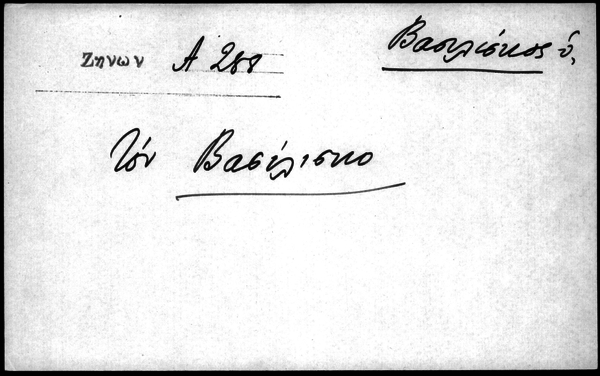 Ζηνων Α 288
Βασιλίσκος ὁ,
τὸν Βασίλισκο